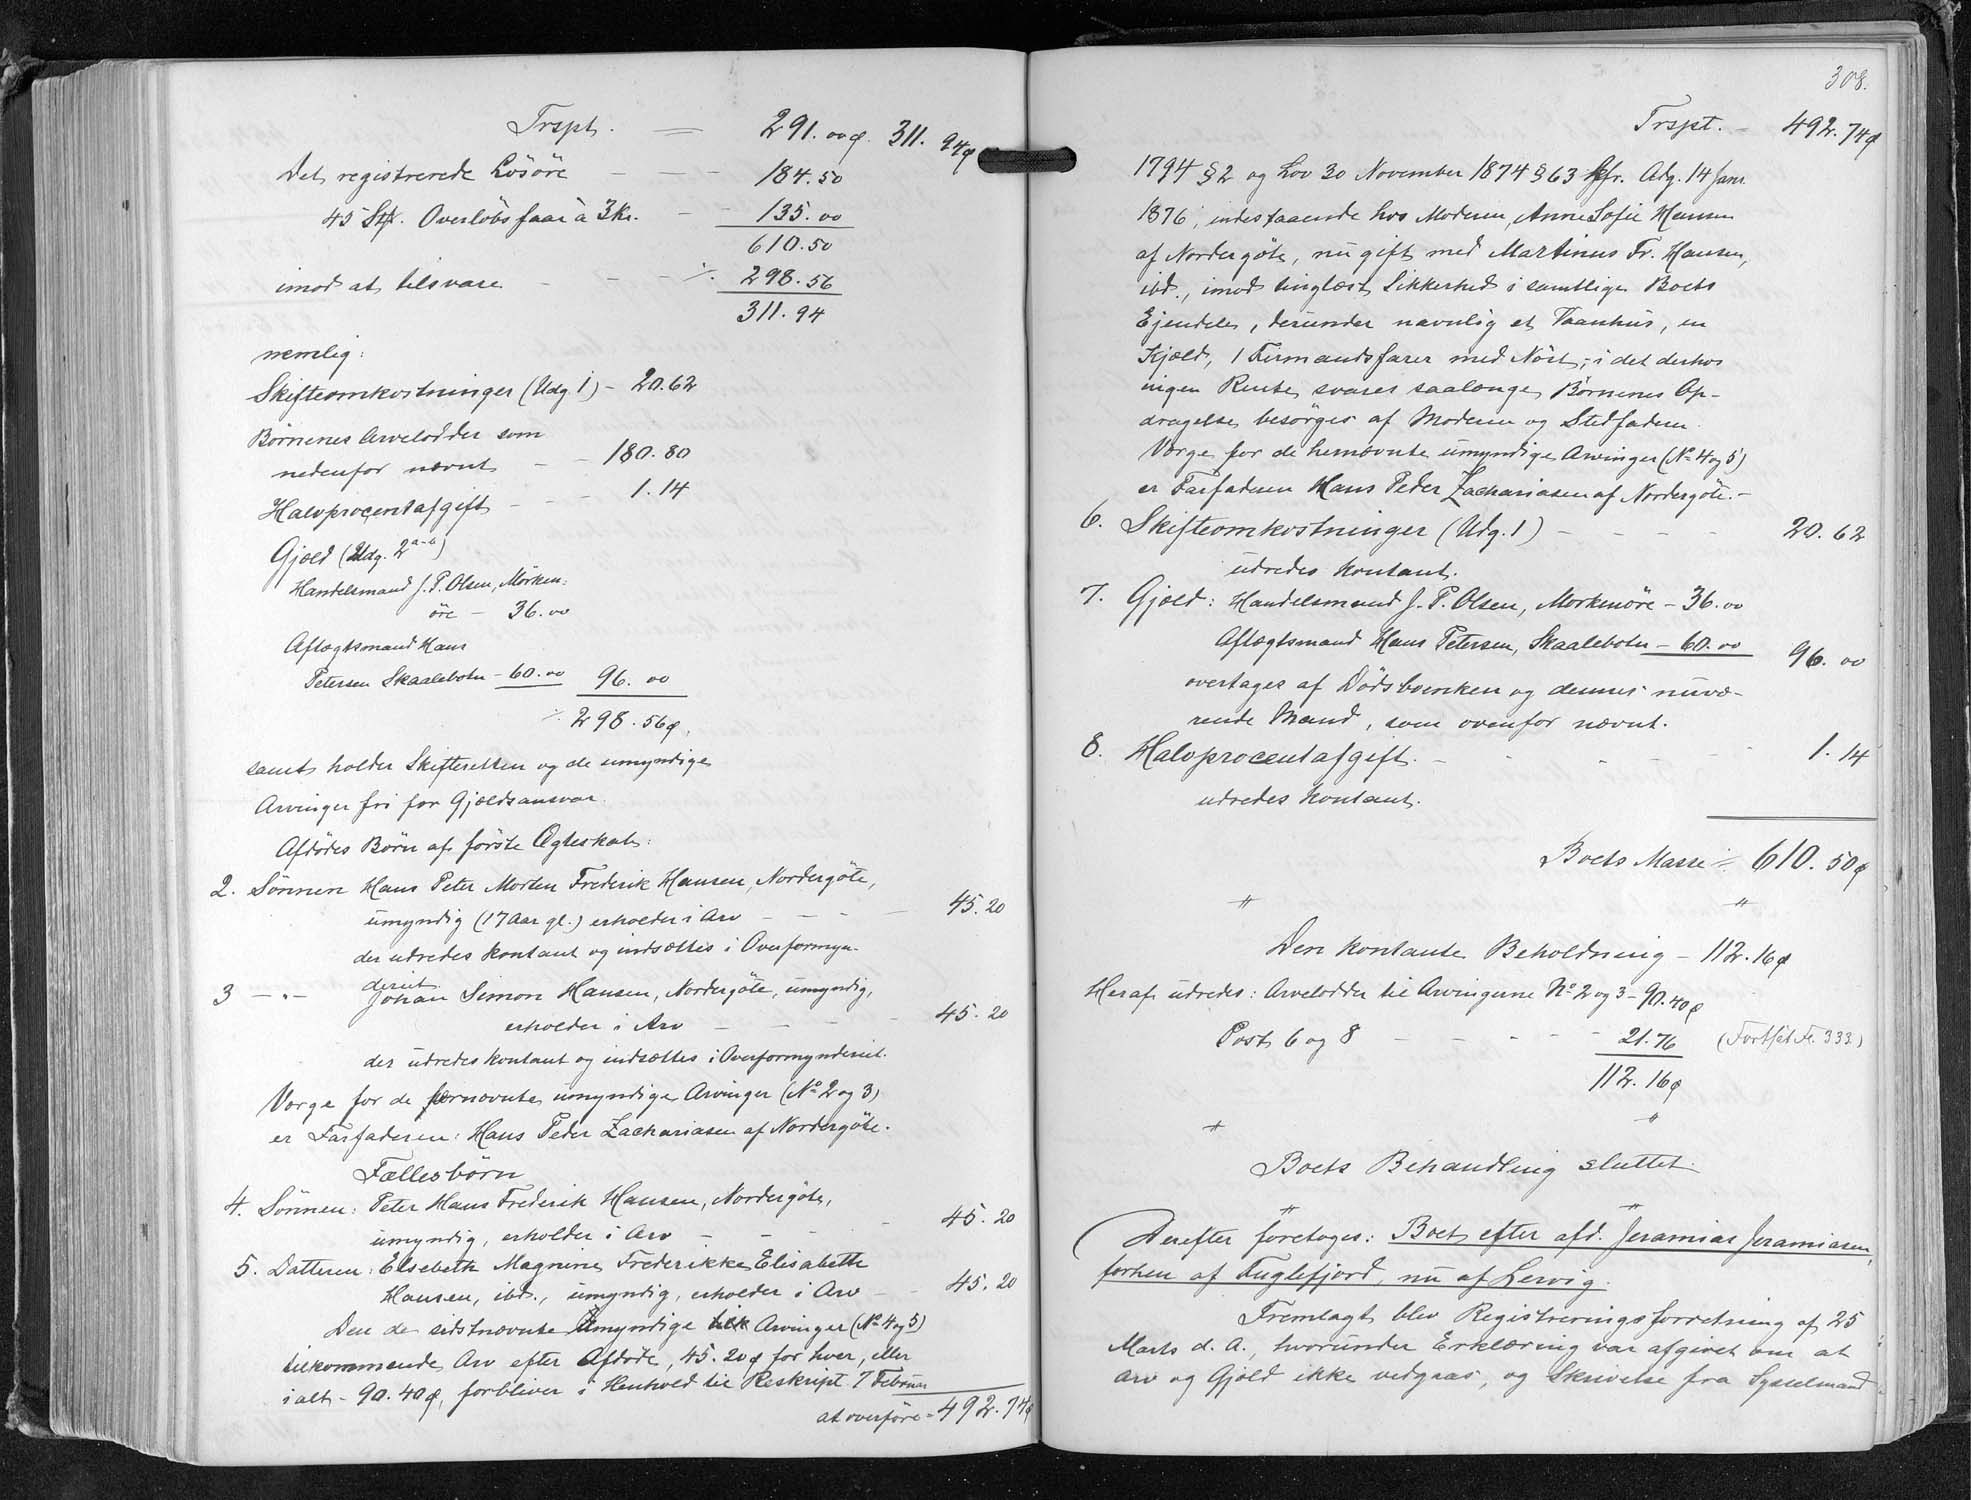 Trspt. — 291.00ø. 311.94ø
Det registrerede Lösöre — — — 184.50
45 Stk. Overløbsfaar à 3 Kr. — — 135.00
610.50
imod at tilsvare — — — ÷ 298.56
311.94
nemlig:
Skifteomkostninger (Udg. 1) — 20.62
Börnenes Arvelodder som
nedenfor nævnt — — 180.80
Halvprocentafgift — — — 1.14
Gjæld (Udg. 2 a-b)
Handelsmand J. P. Olsen, Mörken-
öre — 36.00
Aftægtsmand Hans
Petersen Skaalebotn — 60.00 96.00
÷ 298.56ø.
samt holder Skifteretten og de umyndige
Arvinger fri for Gjældsansvar.
Afdödes Börn af förste Ægteskab:
2. Sönnen Hans Peter Morten Frederik Hansen, Nordergöte,
umyndig (17 Aar gl.) erholder i Arv — — — — 45.20
der udredes kontant og indsættes i Overformyn-
deriet
3 — " — Johan Simon Hansen, Nordergöte, umyndig,
erholder i Arv — — — — 45.20
der udredes kontant og indsættes i Overformynderiet.
Værge for de fornævnte umyndige Arvinger (No 2 og 3)
er Farfaderen: Hans Peder Zachariasen af Nordergöte.
Fællesbörn
4. Sönnen: Peter Hans Frederik Hansen, Nordergöte,
umyndig, erholder i Arv — — — — 45.20
5. Datteren: Elsebeth Magnine Frederikke Elisabeth
Hansen, ibd., umyndig, erholder i Arv — — 45.20
Den de sidstnævnte Umyndige Arvinger (No 4 og 5)
tilkommende Arv efter Afdöde, 45.20ø for hver, eller
ialt — 90.40ø, forbliver i Henhold til Reskript 7 Februar
at overföre = 492.74ø
308.
Trspt. — 492.74ø
1794 § 2 og Lov 30 November 1874 § 63 kfr. Adg. 14 Janr.
1876, indestaaende hos Moderen, Anne Sofie Hansen
af Nordergöte, nu gift med Martinus Fr. Hansen,
ibd., imod tinglæst Sikkerhed i samtlige Boets
Ejendele, derunder navnlig et Vaanhus, en
Kjæld, 1 Firmandsfarer med Nöst; i det derhos
ingen Rente svares saalænge Börnenes Op-
dragelse besörges af Moderen og Stedfaderen.
Værge for de hernævnte umyndige Arvinger (No 4 og 5)
er Farfaderen Hans Peder Zachariasen af Nordergöte. —
6. Skifteomkostninger (Udg. 1) — — — — 20.62
udredes kontant.
7. Gjæld: Handelsmand J. P. Olsen, Morkenöre — 36.00
Aftægtsmand Hans Petersen, Skaalebotn — 60.00 96.00
overtages af Dödsboenken og dennes nuvæ-
rende Mand, som ovenfor nævnt.
8. Halvprocentafgift. — — — — 1.14
udredes kontant.
Boets Masse = 610.50ø
Den kontante Beholdning — 112.16ø
Heraf udredes: Arvelodder til Arvingerne No 2 og 3 — 90.40ø
Post 6 og 8 — — — — 21.76 (Fortsat Fl. 333.)
112.16ø
Boets Behandling sluttet.
Derefter foretoges: Boet efter afd. Jeramias Jeramiasen,
forhen af Fuglefjord, nu af Lervig.
Fremlagt blev Registreringsforretning af 25
Marts d. A., hvorunder Erklæring var afgivet om at
Arv og Gjæld ikke vedgaas, og Skrivelse fra Sysselmand